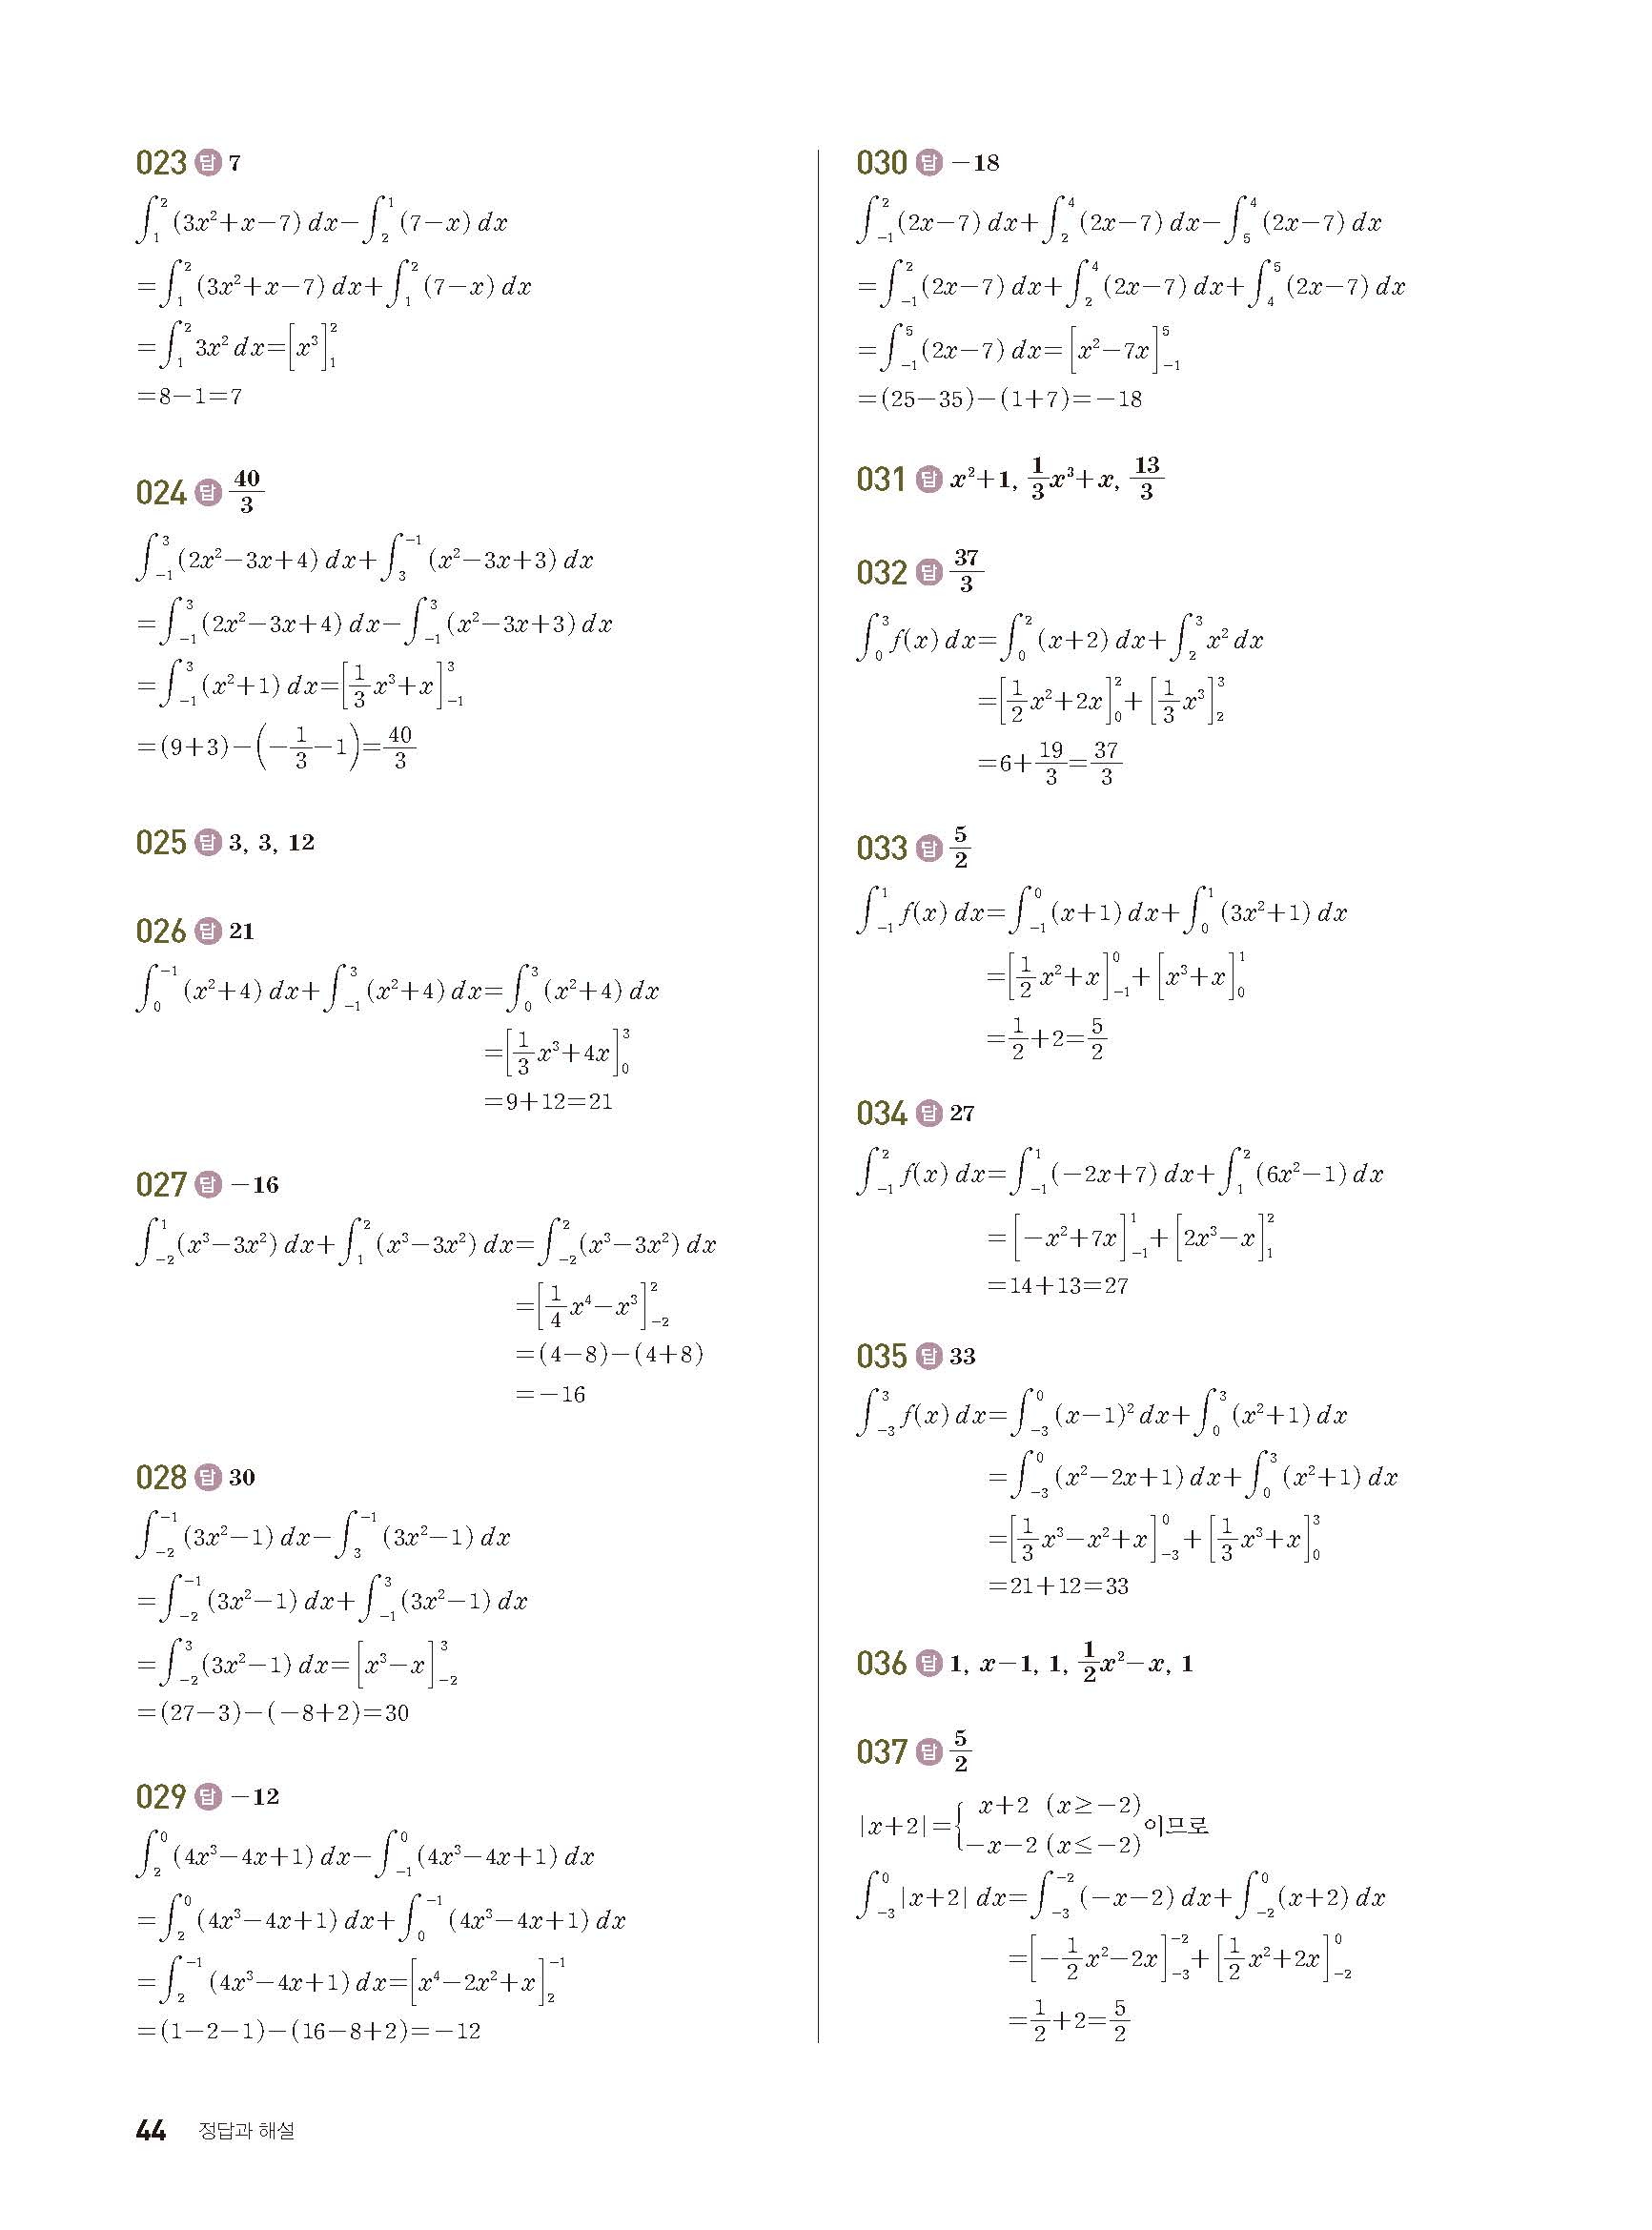 023 답 7
∫₁² (3x²+x−7) dx−∫₂¹ (7−x) dx
=∫₁² (3x²+x−7) dx+∫₁² (7−x) dx
=∫₁² 3x² dx=[x³]₁²
=8−1=7
024 답 40/3
∫₋₁³ (2x²−3x+4) dx+∫₃⁻¹ (x²−3x+3) dx
=∫₋₁³ (2x²−3x+4) dx−∫₋₁³ (x²−3x+3) dx
=∫₋₁³ (x²+1) dx=[1/3 x³+x]₋₁³
=(9+3)−(−1/3−1)=40/3
025 답 3, 3, 12
026 답 21
∫₀⁻¹ (x²+4) dx+∫₋₁³ (x²+4) dx=∫₀³ (x²+4) dx
=[1/3 x³+4x]₀³
=9+12=21
027 답 −16
∫₋₂¹ (x³−3x²) dx+∫₁² (x³−3x²) dx=∫₋₂² (x³−3x²) dx
=[1/4 x⁴−x³]₋₂²
=(4−8)−(4+8)
=−16
028 답 30
∫₋₂⁻¹ (3x²−1) dx−∫₃⁻¹ (3x²−1) dx
=∫₋₂⁻¹ (3x²−1) dx+∫₋₁³ (3x²−1) dx
=∫₋₂³ (3x²−1) dx=[x³−x]₋₂³
=(27−3)−(−8+2)=30
029 답 −12
∫₂⁰ (4x³−4x+1) dx−∫₋₁⁰ (4x³−4x+1) dx
=∫₂⁰ (4x³−4x+1) dx+∫₀⁻¹ (4x³−4x+1) dx
=∫₂⁻¹ (4x³−4x+1) dx=[x⁴−2x²+x]₂⁻¹
=(1−2−1)−(16−8+2)=−12
030 답 −18
∫₋₁² (2x−7) dx+∫₂⁴ (2x−7) dx−∫₅⁴ (2x−7) dx
=∫₋₁² (2x−7) dx+∫₂⁴ (2x−7) dx+∫₄⁵ (2x−7) dx
=∫₋₁⁵ (2x−7) dx=[x²−7x]₋₁⁵
=(25−35)−(1+7)=−18
031 답 x²+1, 1/3 x³+x, 13/3
032 답 37/3
∫₀³ f(x) dx=∫₀² (x+2) dx+∫₂³ x² dx
=[1/2 x²+2x]₀²+[1/3 x³]₂³
=6+19/3=37/3
033 답 5/2
∫₋₁¹ f(x) dx=∫₋₁⁰ (x+1) dx+∫₀¹ (3x²+1) dx
=[1/2 x²+x]₋₁⁰+[x³+x]₀¹
=1/2+2=5/2
034 답 27
∫₋₁² f(x) dx=∫₋₁¹ (−2x+7) dx+∫₁² (6x²−1) dx
=[−x²+7x]₋₁¹+[2x³−x]₁²
=14+13=27
035 답 33
∫₋₃³ f(x) dx=∫₋₃⁰ (x−1)² dx+∫₀³ (x²+1) dx
=∫₋₃⁰ (x²−2x+1) dx+∫₀³ (x²+1) dx
=[1/3 x³−x²+x]₋₃⁰+[1/3 x³+x]₀³
=21+12=33
036 답 1, x−1, 1, 1/2 x²−x, 1
037 답 5/2
|x+2|={ x+2 (x≥−2)
−x−2 (x≤−2) 이므로
∫₋₃⁰ |x+2| dx=∫₋₃⁻² (−x−2) dx+∫₋₂⁰ (x+2) dx
=[−1/2 x²−2x]₋₃⁻²+[1/2 x²+2x]₋₂⁰
=1/2+2=5/2
44 정답과 해설